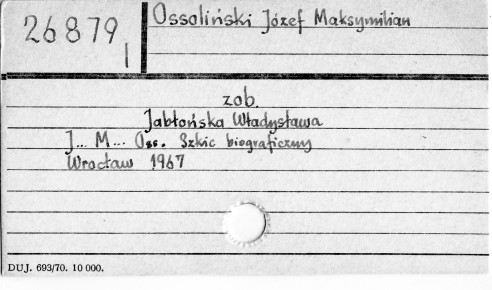 26879
I
Ossoliński Józef Maksymilian
zob.
Jabłońska Władysława
J... M... Oss. Szkic biograficzny
Wrocław 1967
DUJ. 693/70. 10 000.